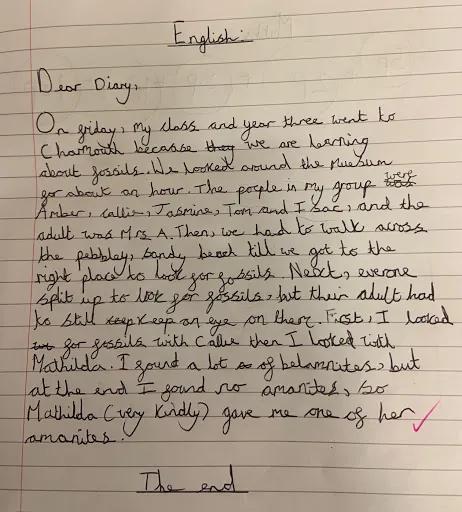 English:
Dear Diary,
On friday, my class and year three went to
Charmouth because they we are lerning
about fossils. We looked around the Muesum
for about an hour. The poeple in my group were was
Amber, callie, Jasmine, Tom and Isac, and the
adult was Mrs A. Then, we had to walk across
the pebbley, sandy beach till we got to the
right place to look for fossils. Next, everone
split up to look for fossils, but their adult had
to still keep on eye on them. First, I looked
for fossils with Callie then I looked with
Mathilda. I found a lot of belamnites, but
at the end I found no amanites, so
Mathilda (very kindly) gave me one of her
amanites.
The end